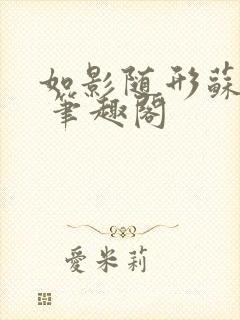 如影随形蘇
筆趣閣
愛米莉